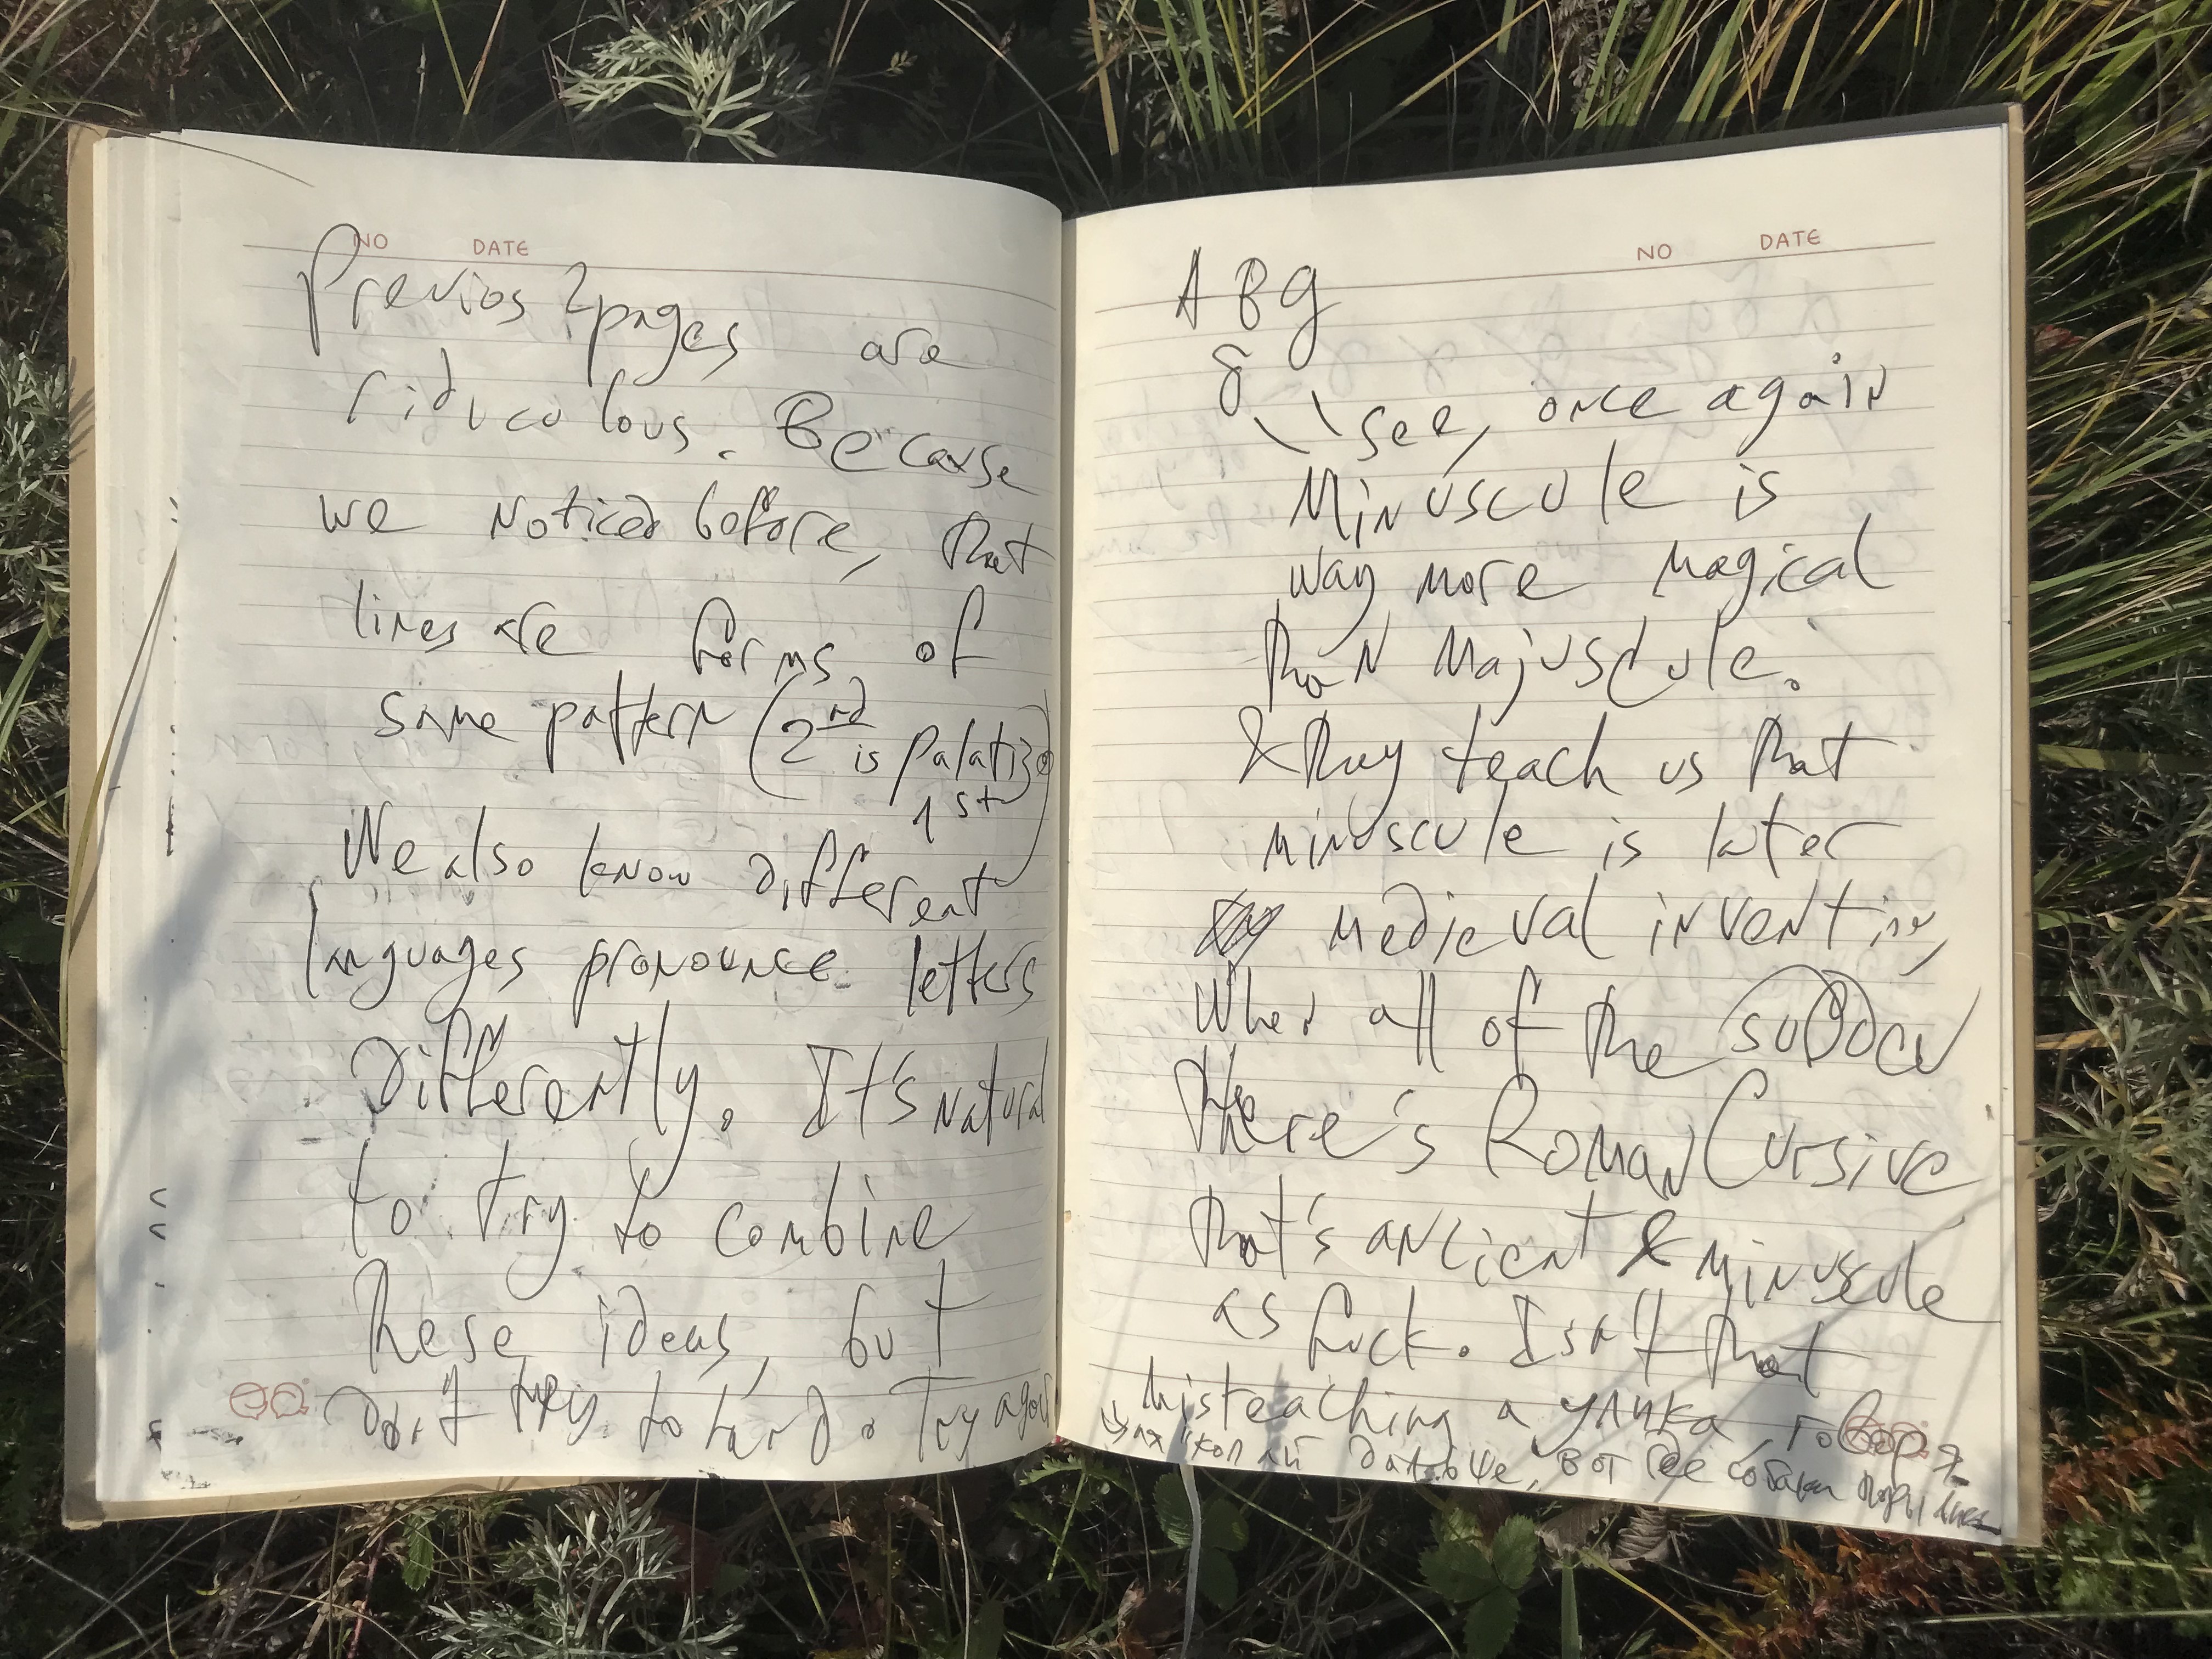 NO DATE
Previos 2 pages are
ridiculous. Because
we Noticed before, that
lines are forms of
same pattern (2nd is palatized
1st)
We also know different
languages pronounce letters
Differently. It's natural
to try to combine
these ideas but
Don't try to hard. Try again
NO DATE
A B g
8 \ See, once again
Minuscule is
way more magical
than Majuscule.
& they teach us that
minuscule is later
medieval invention,
When all of the sudden
there's Roman Cursive
that's ancient & minuscule
as fuck. Isn't that
misteaching a